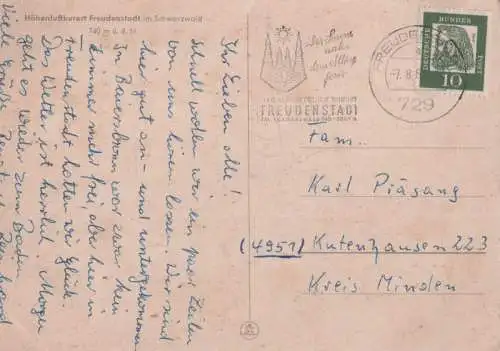 Höhenluftkurort Freudenstadt im Schwarzwald
740 m ü. d. M.
Ihr Lieben alle!
Schnell wollen wir ein paar Zeilen
von uns hören lassen. Wir sind
hier gut an- und untergekommen
In Baiersbronn war zwar kein
Zimmer mehr frei aber hier in
Freudenstadt hatten wir Glück.
Das Wetter ist herrlich. Morgen
geht es wieder zum Baden
viele Grüße
und
Der Sonne
nahe
dem Alltag
fern
FREUDENSTADT
FREUDEN
-7.8.6
729
DEUTSCHE
BUNDES
POST
10
Fam.
Karl Piågang
(4951) Kutenhausen 223
Kreis Minden